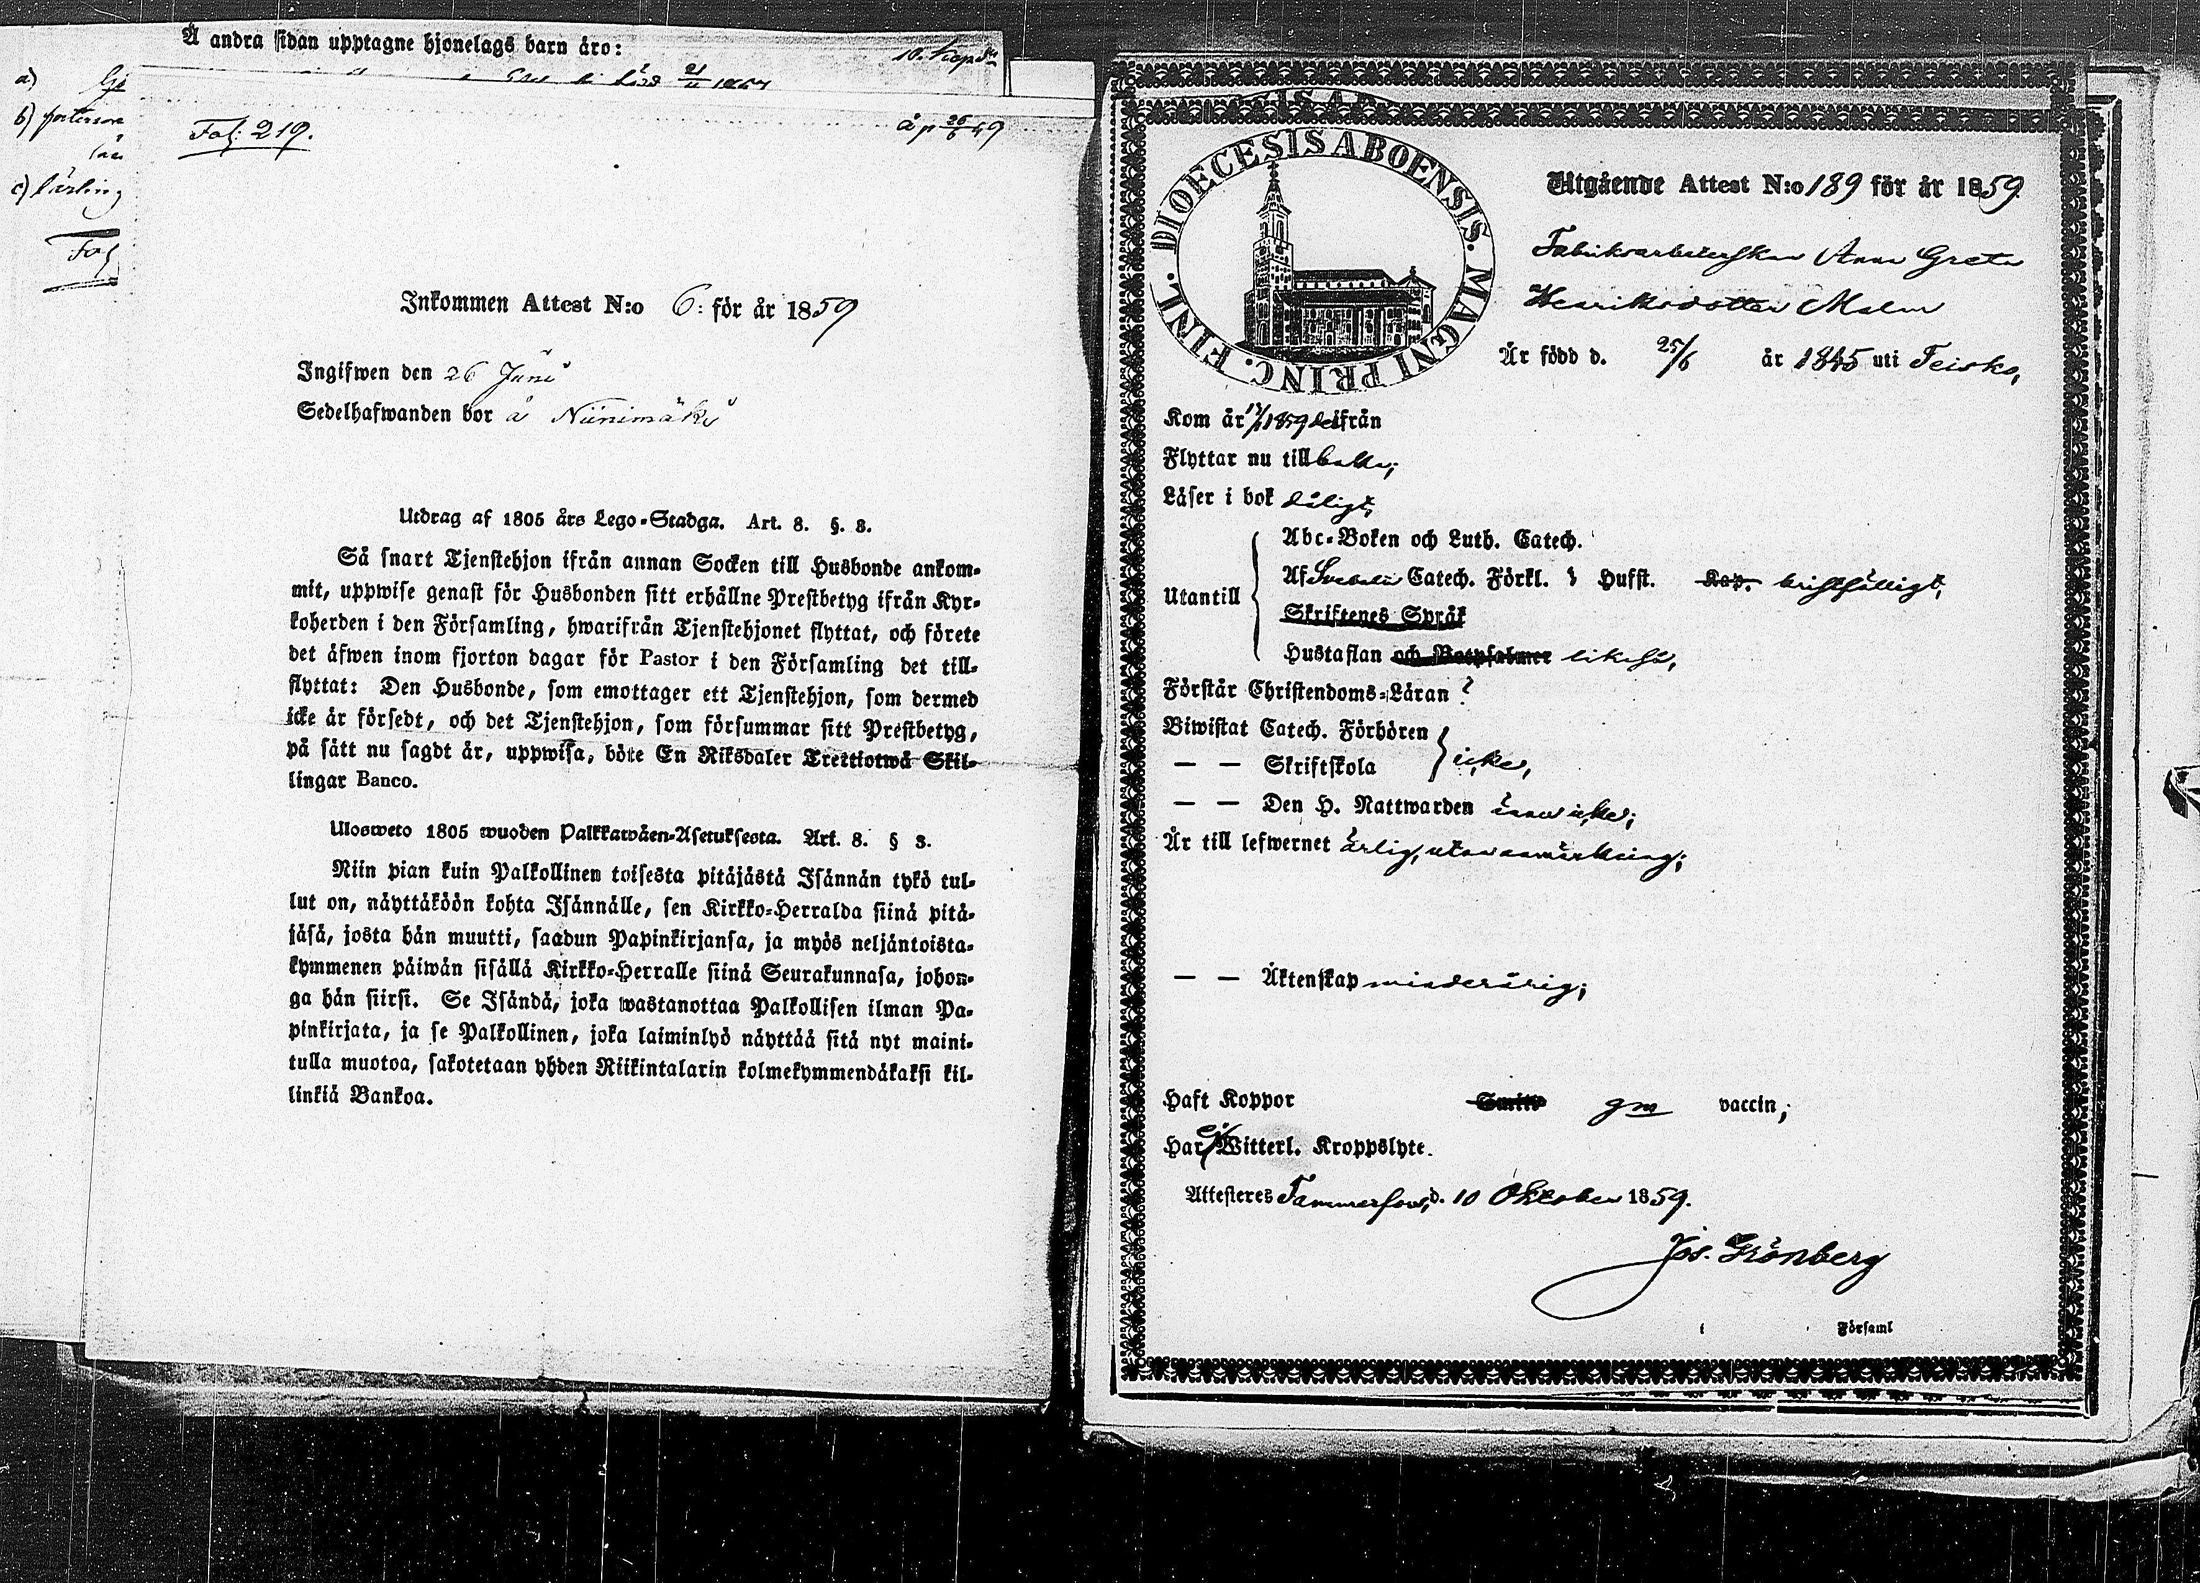 Å andra sidan upptagne hjonelags barn äro:
a)
b)
c) lärling
Fol: 219.
Inkommen Attest N:o 6: för år 1859
Ingifwen den 26 Juni
Sedelhafwanden bor å Niinimäki
Utdrag af 1805 års Lego-Stadga. Art. 8. §. 3.
Så snart Tjenstehjon ifrån annan Socken till Husbonde ankom-
mit, uppwise genast för Husbonden sitt erhållne Prestbetyg ifrån Kyr-
koherden i den Församling, hwarifrån Tjenstehjonet flyttat, och förete
det äfwen inom fjorton dagar för Pastor i den Församling det till-
flyttat: Den Husbonde, som emottager ett Tjenstehjon, som dermed
icke är försedt, och det Tjenstehjon, som försummar sitt Prestbetyg,
på sätt nu sagdt är, uppwisa, böte En Riksdaler Trettiotwå Skil-
lingar Banco.
Ulosweto 1805 wuoden Palkkawäen-Asetuksesta. Art. 8. § 3.
Niin pian kuin Palkollinen toisesta pitäjästä Isännän tykö tul-
lut on, näyttäköön kohta Isännälle, sen Kirkko-Herralda siinä pitä-
jäsä, josta hän muutti, saadun Papinkirjansa, ja myös neljäntoista-
kymmenen päiwän sisällä Kirkko-Herralle siinä Seurakunnasa, johon-
ga hän siirsi. Se Isändä, joka wastanottaa Palkollisen ilman Pa-
pinkirjata, ja se Palkollinen, joka laiminlyö näyttää sitä nyt maini-
tulla muotoa, sakotetaan yhden Riikintalarin kolmekymmendäkaksi kil-
linkiä Bankoa.
DIOECESIS ABOENSIS. MAGNI PRINC. FINL.
Utgående Attest N:o 189 för år 1859.
Fabriksarbeterskan Anna Greta
Henriksdotter Malm
Är född d. 25/6 år 1845 uti Teisko,
Kom år 1859 ifrån
Flyttar nu till
Läser i bok dåligt,
Utantill
Abc-Boken och Luth. Catech.
Af Svebelii Catech. Förkl. Hufst. Kap. bristfälligt,
Skriftenes Språk
Hustaflan och Botpsalmer likaså,
Förstår Christendoms-Läran ?
Biwistat Catech. Förhören
— — Skriftskola icke,
— — Den H. Nattwarden ännu icke;
Är till lefwernet ärlig, utan anmärkning;
— — Äktenskap minderårig;
Haft Koppor gm vaccin;
Har ej Witterl. Kroppslyte.
Attesteres Tammerfors, d. 10 Oktober 1859.
Jos. Grönberg
i Församl